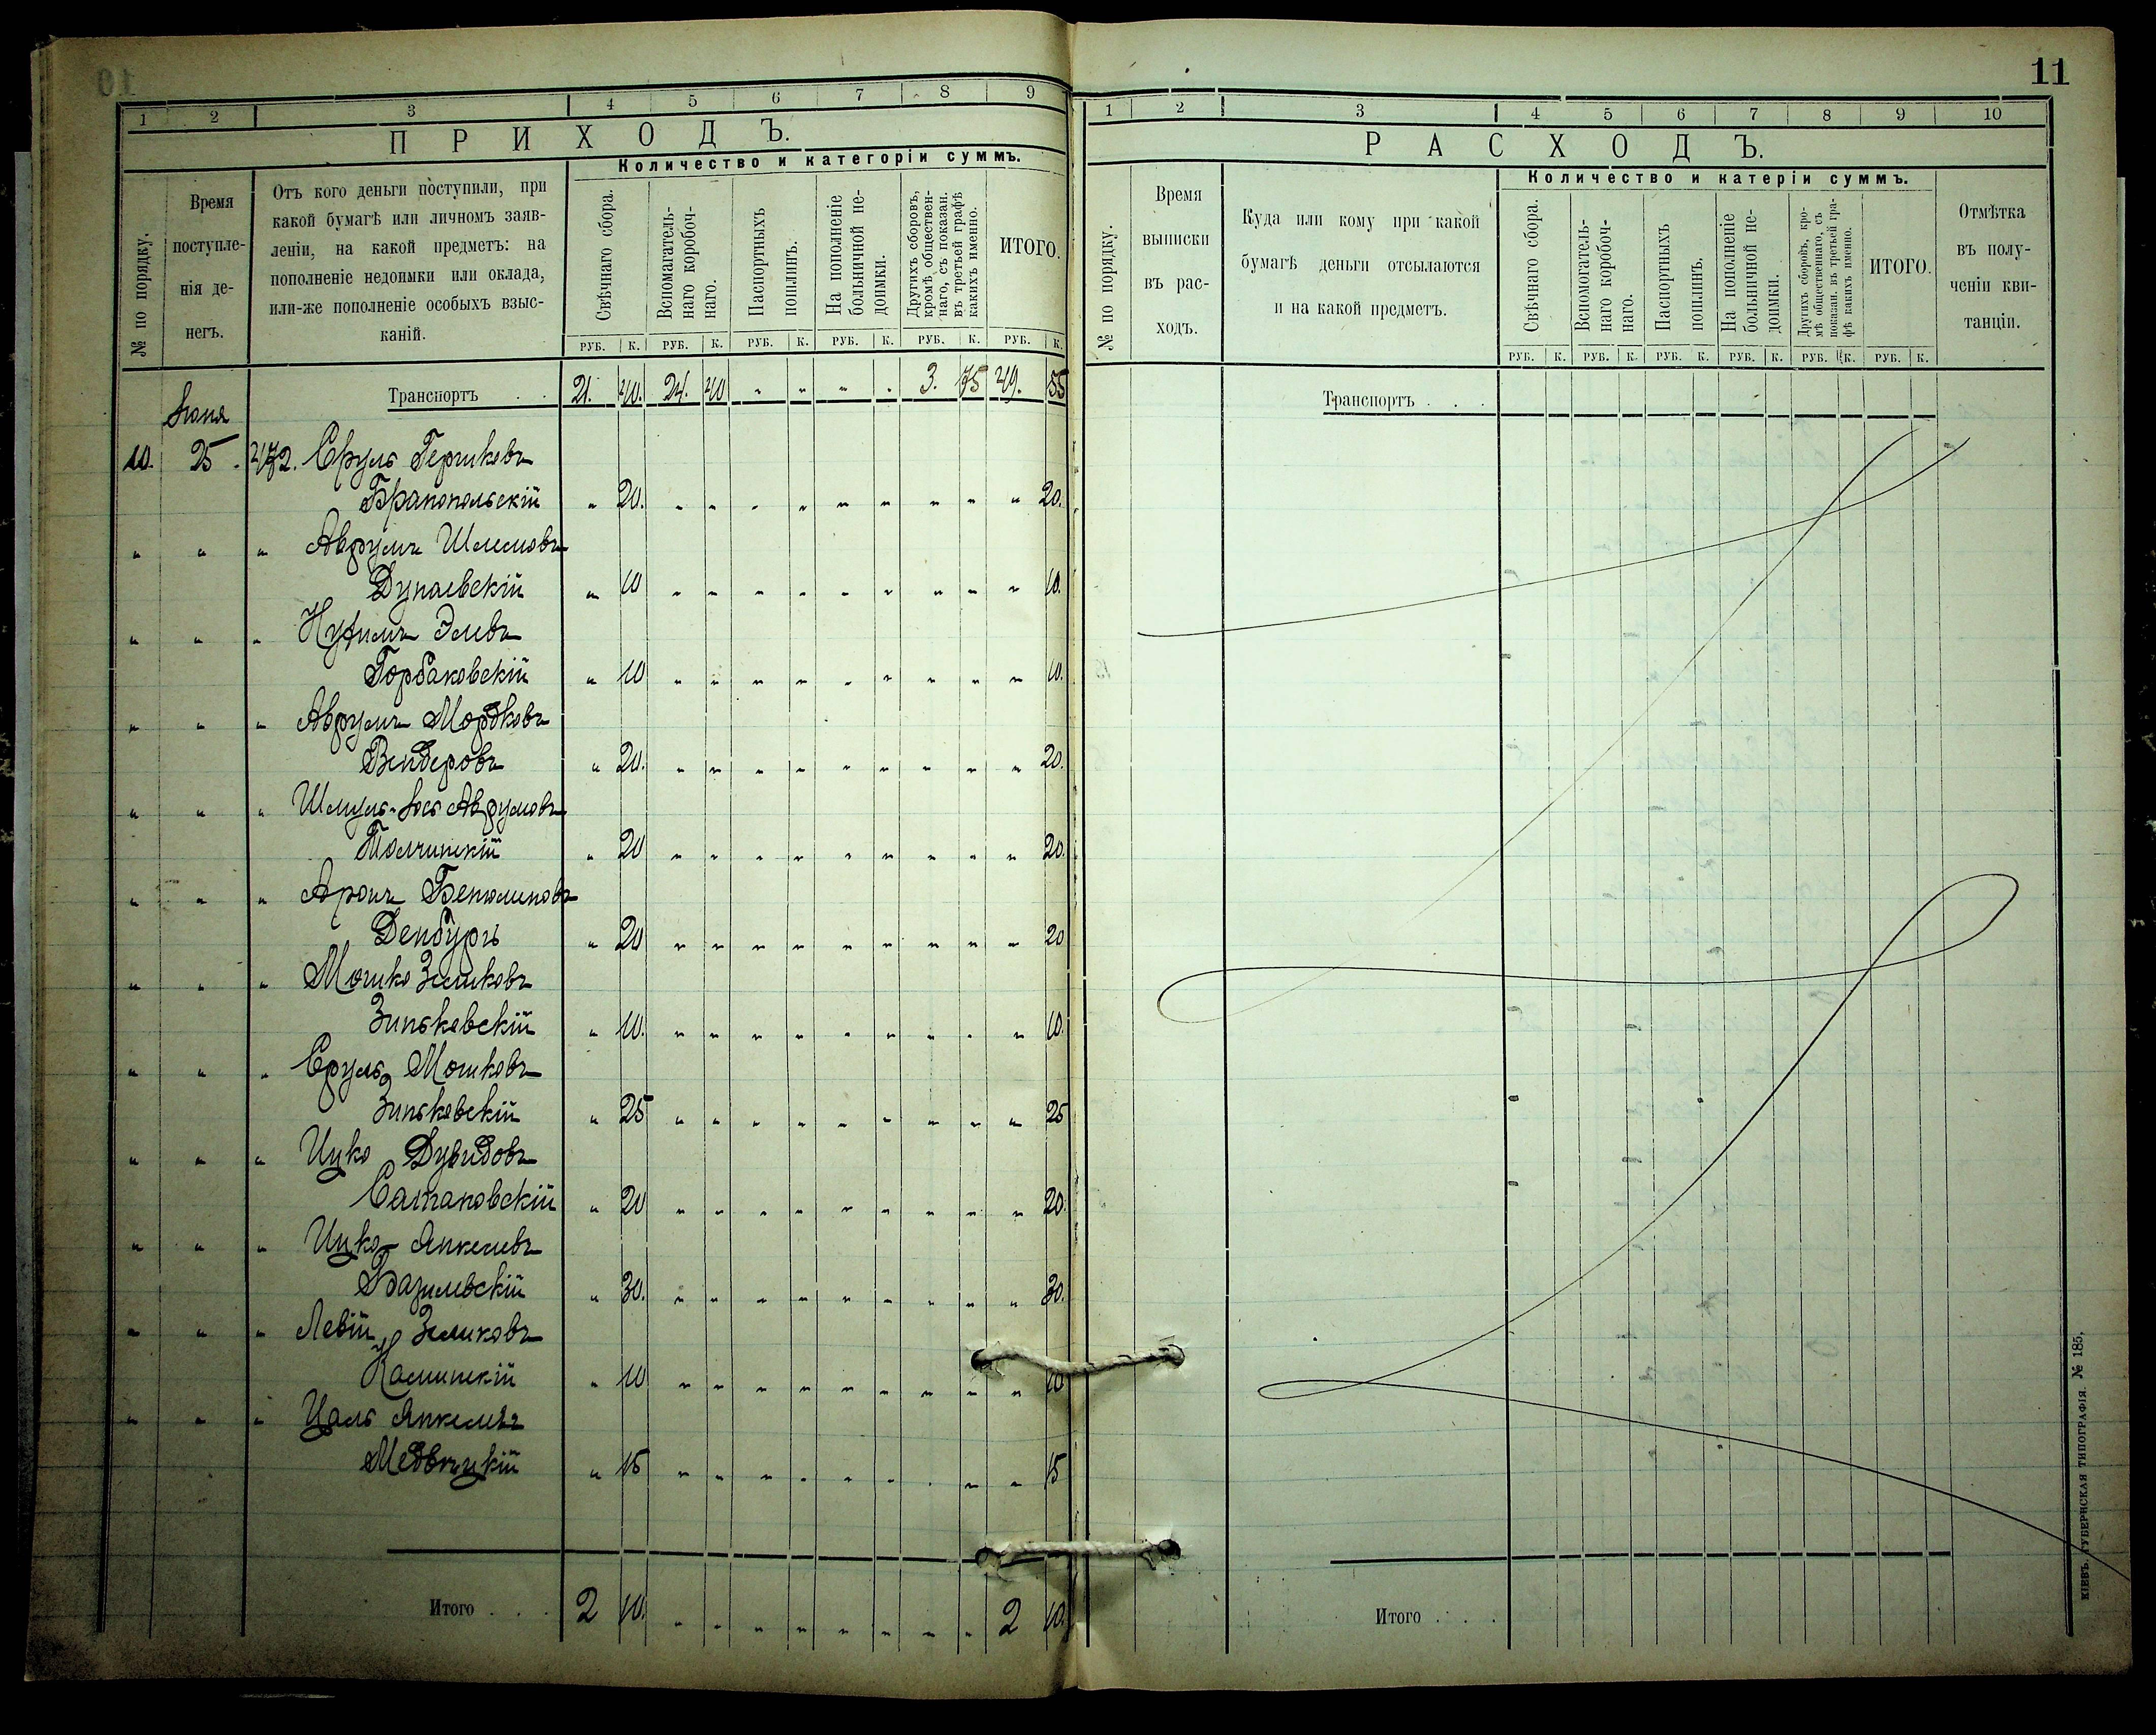 11
1 2 3 4 5 6 7 8 9
ПРИХОДЪ.
Количество и категоріи суммъ.
№ по порядку.
Время
поступле-
нія де-
негъ.
Отъ кого деньги поступили, при
какой бумагѣ или личномъ заяв-
леніи, на какой предметъ: на
пополненіе недоимки или оклада,
или-же пополненіе особыхъ взыс-
каній.
Свѣчнаго сбора.
Вспомагатель-
наго коробоч-
наго.
Паспортныхъ
пошлинъ.
На пополненіе
больничной не-
доимки.
Другихъ сборовъ,
кромѣ обществен-
наго, съ показан.
въ третьей графѣ
какихъ именно.
ИТОГО.
РУБ. К. РУБ. К. РУБ. К. РУБ. К. РУБ. К. РУБ. К.
Транспортъ . . 21. 40. 24. 40 " " " " 3. 75 49. 55
Іюня
10. 25. 472. Сруль Гершковъ
Бранопольскій " 20. " " " " " " " " " 20.
" " " Аврумъ Шлемовъ
Дунаевскій " 10 " " " " " " " " " 10.
" " " Нухимъ Элевъ
Горбаковскій " 10 " " " " " " " " " 10.
" " " Аврумъ Мордковъ
Вендеровъ " 20. " " " " " " " " " 20.
" " " Шмуль-Іось Аврумовъ
Толчинскій " 20 " " " " " " " " " 20.
" " " Аронъ Беньминовъ
Денбургъ " 20 " " " " " " " " " 20
" " " Мошко Зеликовъ
Зиньковскій " 10. " " " " " " " " " 10.
" " " Сруль Мошковъ
Зиньковскій " 25 " " " " " " " " " 25
" " " Ицко Дувидовъ
Сатановскій " 20 " " " " " " " " " 20.
" " " Ицко Янкелевъ
Базилевскій " 30. " " " " " " " " " 30.
" " " Левій Зеликовъ
Каминскій " 10 " " " " " " " " " 10
" " " Цаль Янкелевъ
Медвицкій " 15 " " " " " " " " " 15
Итого . . . 2 10. " " " " " " " " 2 10.
1 2 3 4 5 6 7 8 9 10
РАСХОДЪ.
Количество и катеріи суммъ.
№ по порядку.
Время
выписки
въ рас-
ходъ.
Куда или кому при какой
бумагѣ деньги отсылаются
и на какой предметъ.
Свѣчнаго сбора.
Вспомогатель-
наго коробоч-
наго.
Паспортныхъ
пошлинъ.
На пополненіе
больничной не-
доимки.
Другихъ сборовъ, кро-
мѣ общественнаго, съ
показан. въ третьей гра-
фѣ какихъ именно.
ИТОГО.
Отмѣтка
въ полу-
ченіи кви-
танціи.
РУБ. К. РУБ. К. РУБ. К. РУБ. К. РУБ. К. РУБ. К.
Транспортъ . . .
Итого . . .
КІЕВЪ. ГУБЕРНСКАЯ ТИПОГРАФІЯ. № 185.